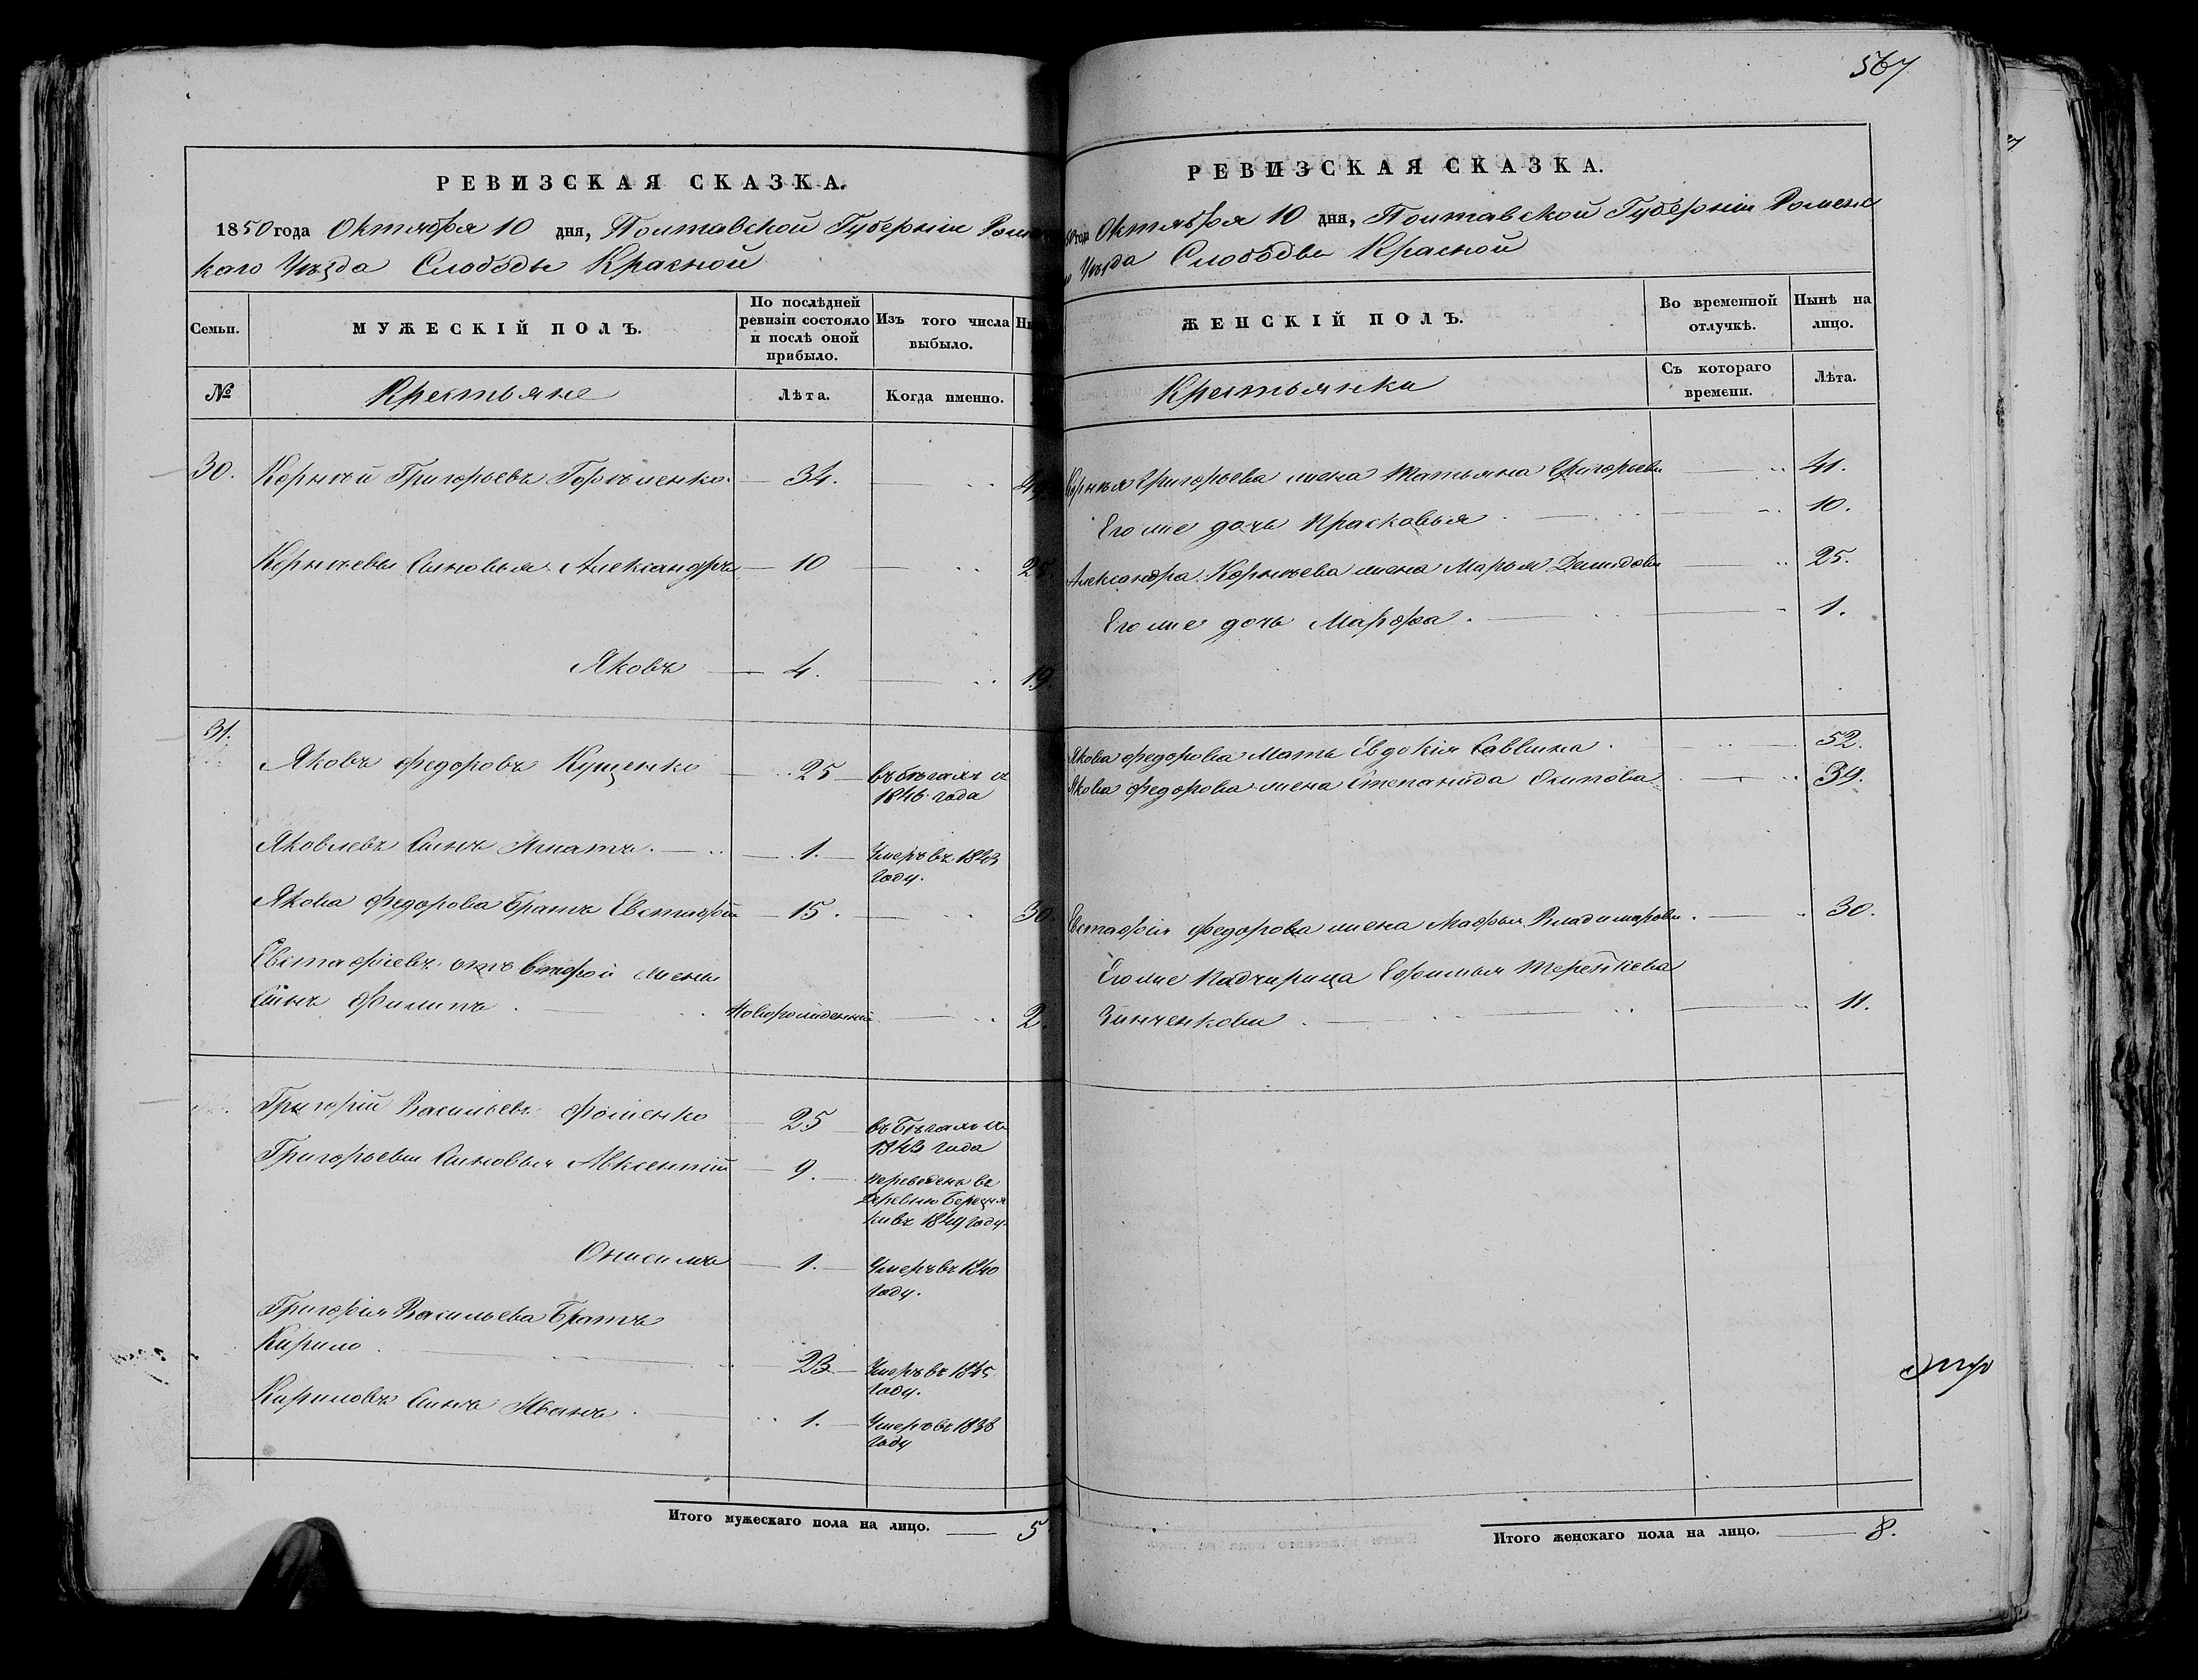 567
РЕВИЗСКАЯ СКАЗКА.
1850 года Октября 10 дня, Полтавской Губерніи Ромен
каго Уѣзда Слободы Красной
Семьи.
МУЖЕСКІЙ ПОЛЪ.
По послѣдней
ревизіи состояло
и послѣ оной
прибыло.
Изъ того числа
выбыло.
№
Крестьяне
Лѣта.
Когда именно.
30. Корнѣй Григорьевъ 34.
Корнѣевы Сыновья Александръ 10 25
Яковъ 4. 19.
31.
Яковъ Федоровъ Куценко 25 въ бѣгахъ съ
1846 года
Яковлевъ Сынъ Игнатъ. 1. Умеръ въ 1843
году.
Якова Федорова Братъ Евстафій 15. 30.
Евстафіевъ отъ второй жены
Сынъ Филипъ новорожденный 2.
Григорій Васильевъ Фоменко 25 въ бѣгахъ съ
1843 года
Григорьевы Сыновья Авксентій 9. переведенъ въ
деревню
въ 1849 году.
Онисимъ 1. Умеръ въ 1840
году.
Григорія Васильева Братъ
Кирило 23 Умеръ въ 1845
году.
Кириловъ Сынъ Иванъ 1. Умеръ въ 1838
году
Итого мужескаго пола на лицо. 5
РЕВИЗСКАЯ СКАЗКА.
года Октября 10 дня, Полтавской Губерніи Роменс
Уѣзда Слободы Красной
ЖЕНСКІЙ ПОЛЪ.
Во временной
отлучкѣ.
Нынѣ на
лицо.
Крестьянки
Съ котораго
времени.
Лѣта.
Корнѣя Григорьева жена Татьяна Григорьева 41.
Его же дочь Прасковья 10.
Александра Корнѣева жена Марья Демидова 25.
Его же дочь Марфа. 1.
Якова Федорова Мать Евдокія Саввина. 52.
Якова Федорова жена Степанида Осипова 39.
Евстафія Федорова жена Марья Владимирова. 30.
Его же Падчирица Ефимья Терентіева
Зинченкова 11.
Итого женскаго пола на лицо. 8.